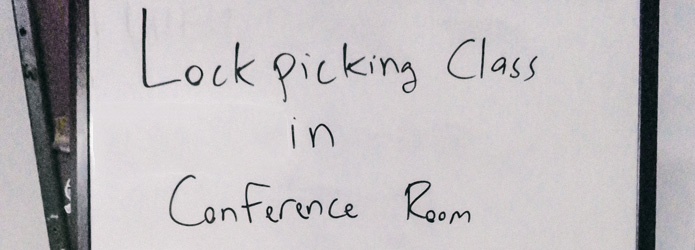 Lock picking Class
in
Conference Room